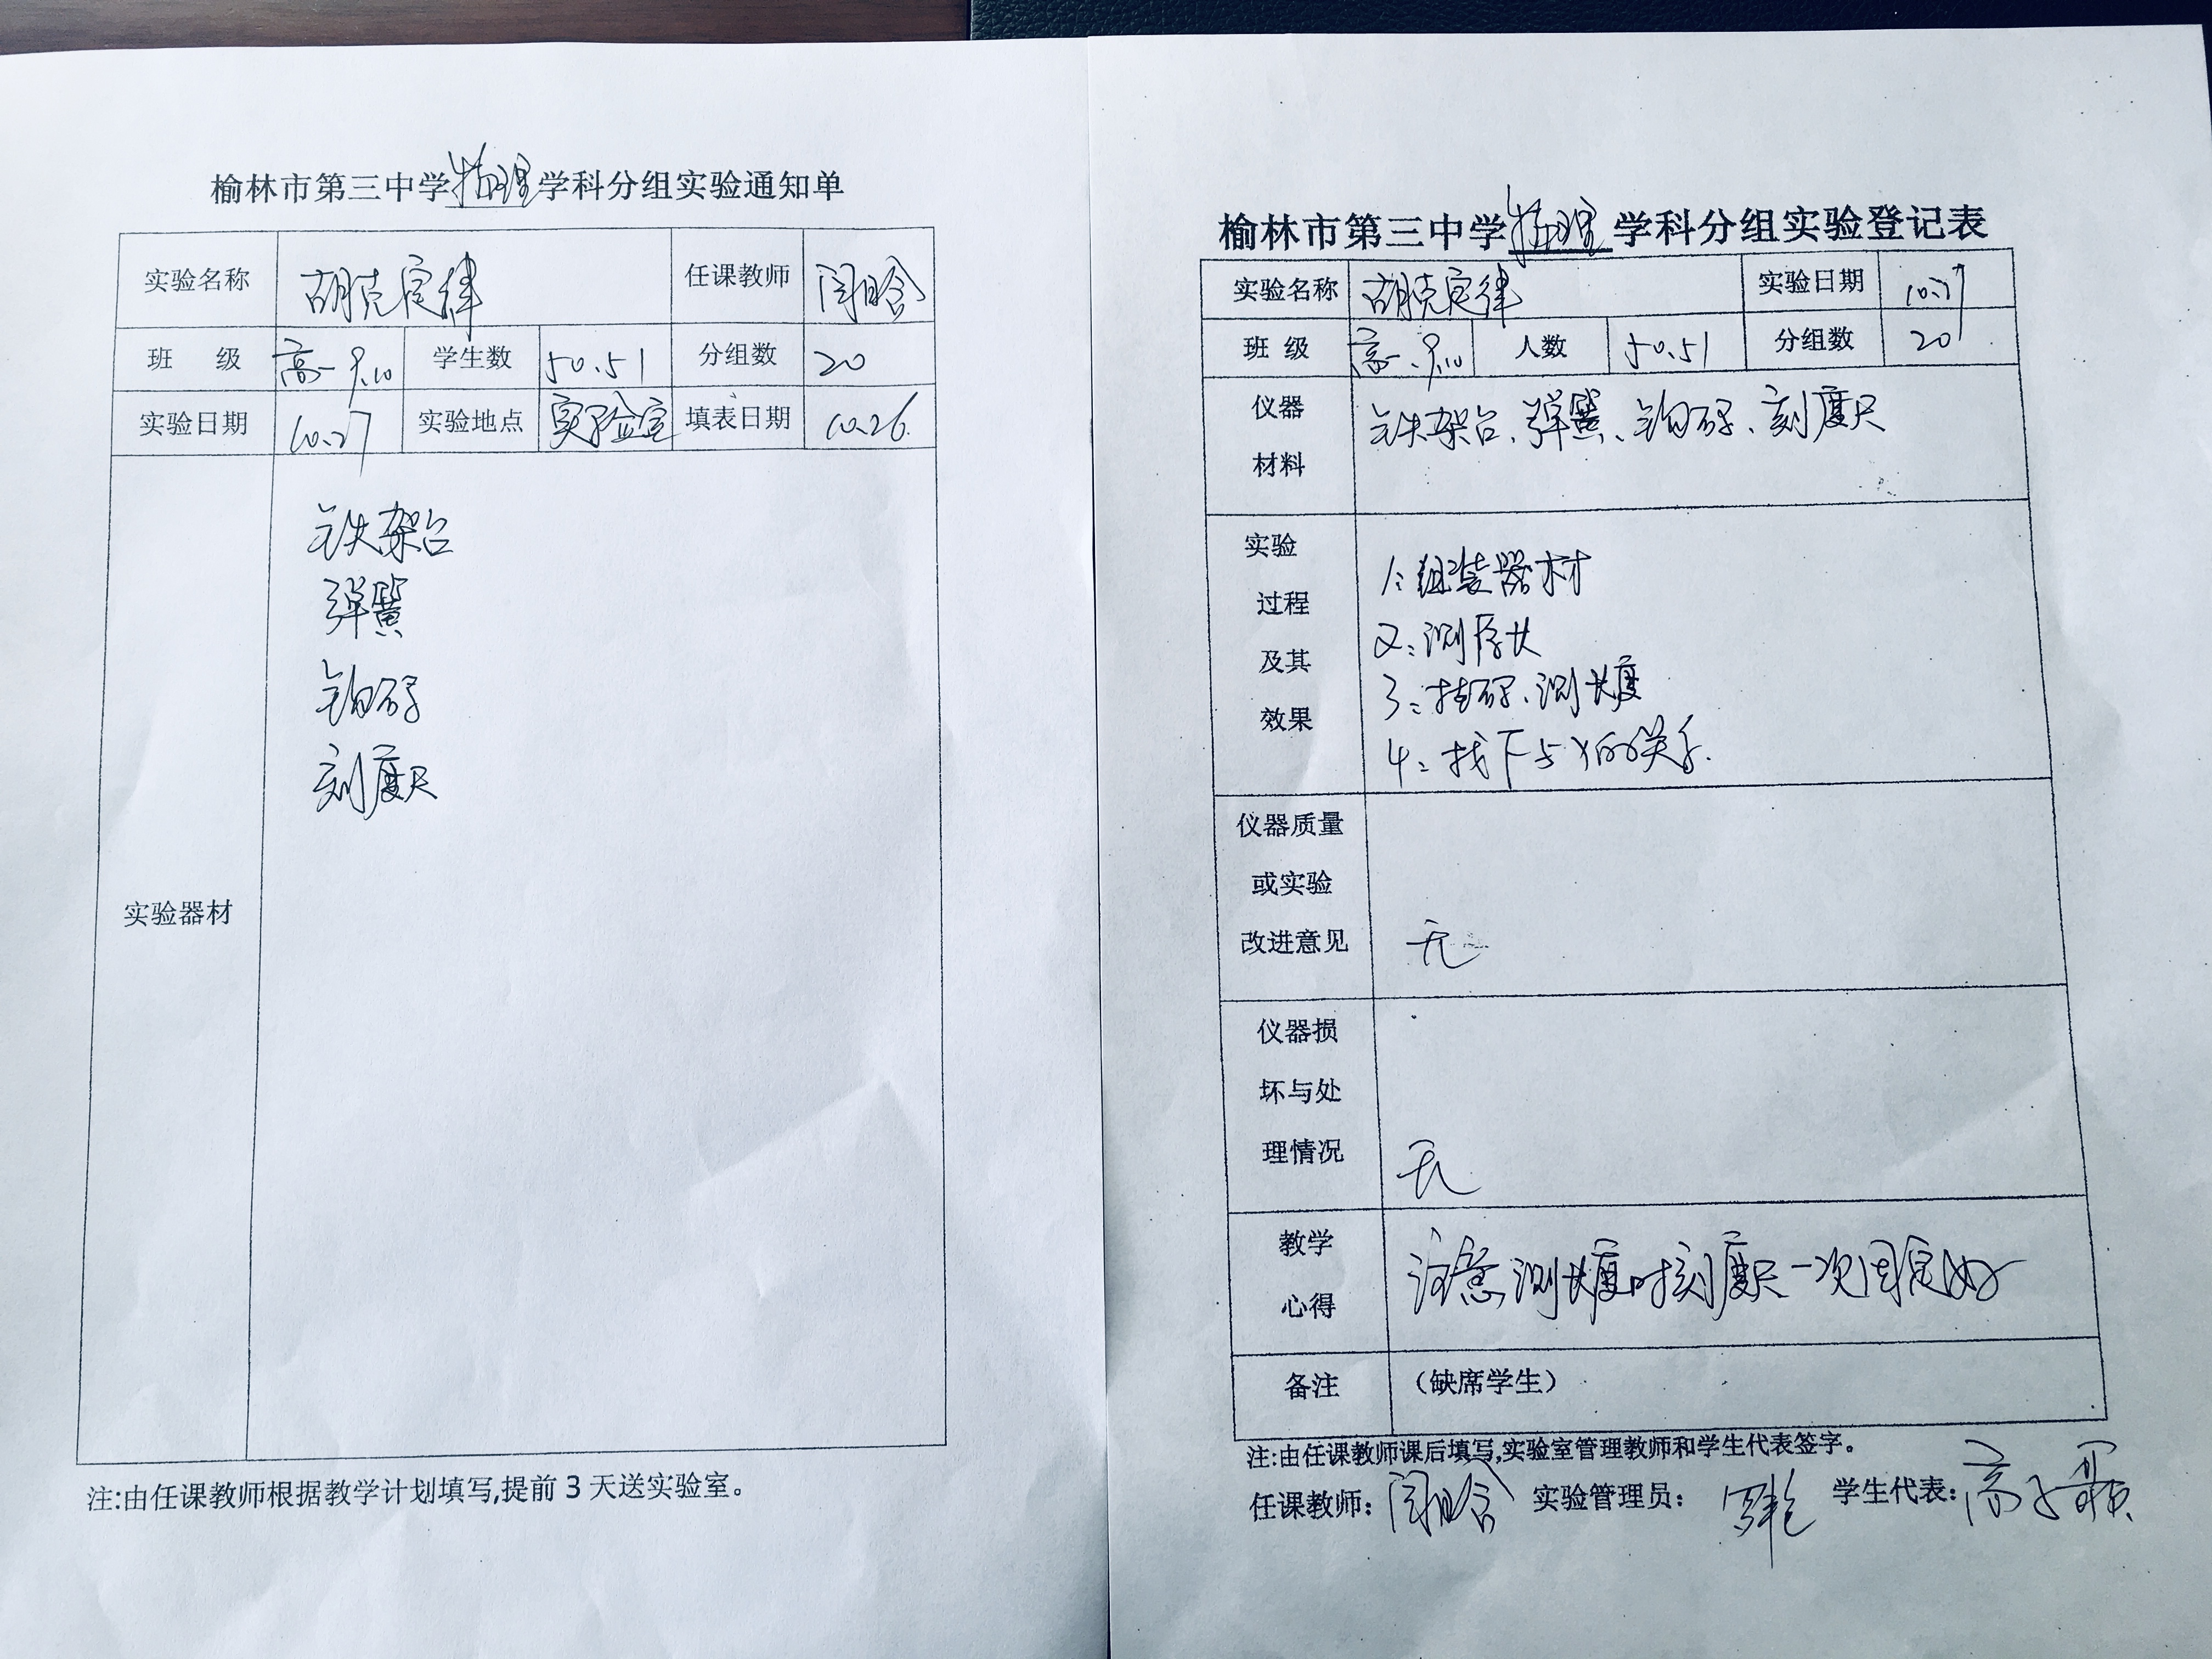 榆林市第三中学物理学科分组实验通知单
实验名称 胡克定律 任课教师 闫晗
班 级 高一 9.10 学生数 50.51 分组数 20
实验日期 10.27 实验地点 实验室 填表日期 10.26.
实验器材
铁架台
弹簧
钩码
刻度尺
注:由任课教师根据教学计划填写,提前 3 天送实验室。
榆林市第三中学物理学科分组实验登记表
实验名称 胡克定律 实验日期 10.27
班 级 高一.9.10 人数 50.51 分组数 20
仪器
材料
铁架台、弹簧、钩码、刻度尺
实验
过程
及其
效果
1: 组装器材
2: 测原长
3: 挂码、测长度
4: 找F与x的关系.
仪器质量
或实验
改进意见
无
仪器损
坏与处
理情况
无
教学
心得
注意测长度时刻度尺一次固定好
备注 (缺席学生)
注:由任课教师课后填写,实验室管理教师和学生代表签字。
任课教师: 闫晗 实验管理员: 学生代表: 高子